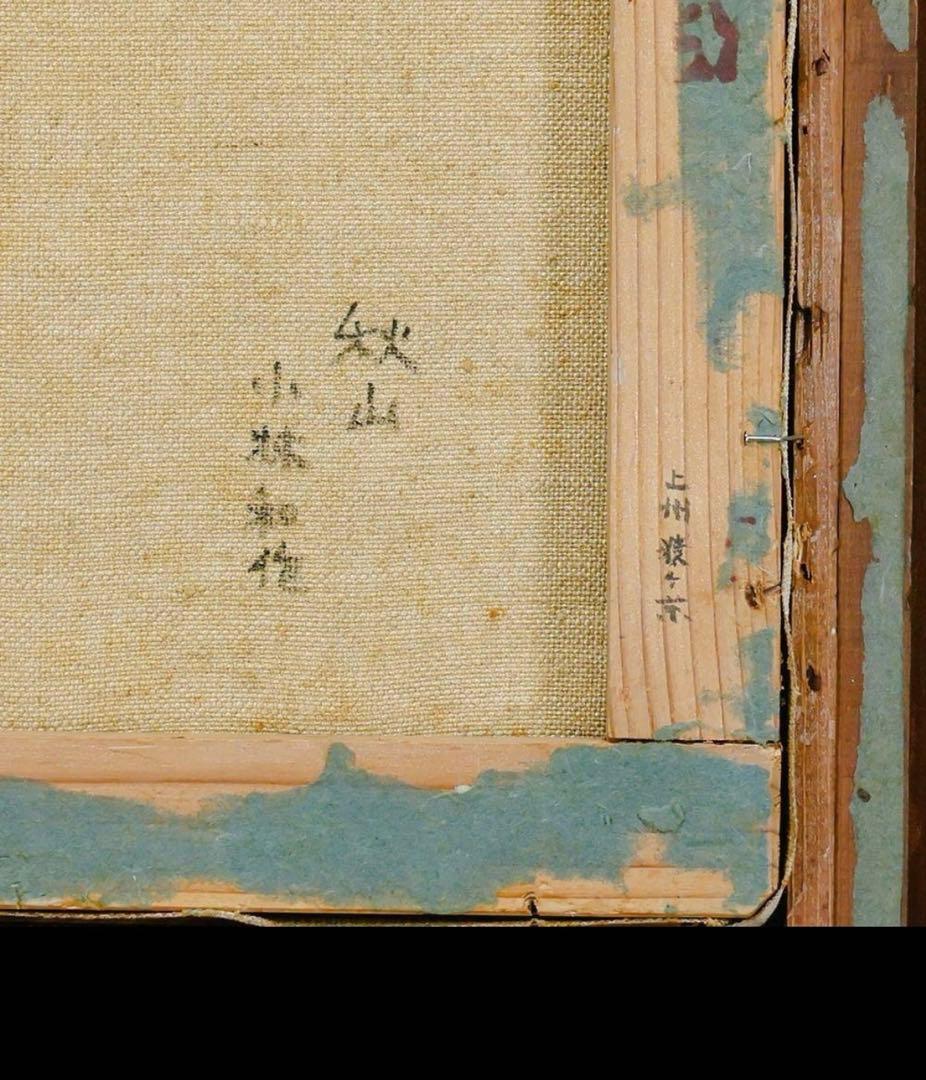 上州 猿ヶ京
秋山
小林和作